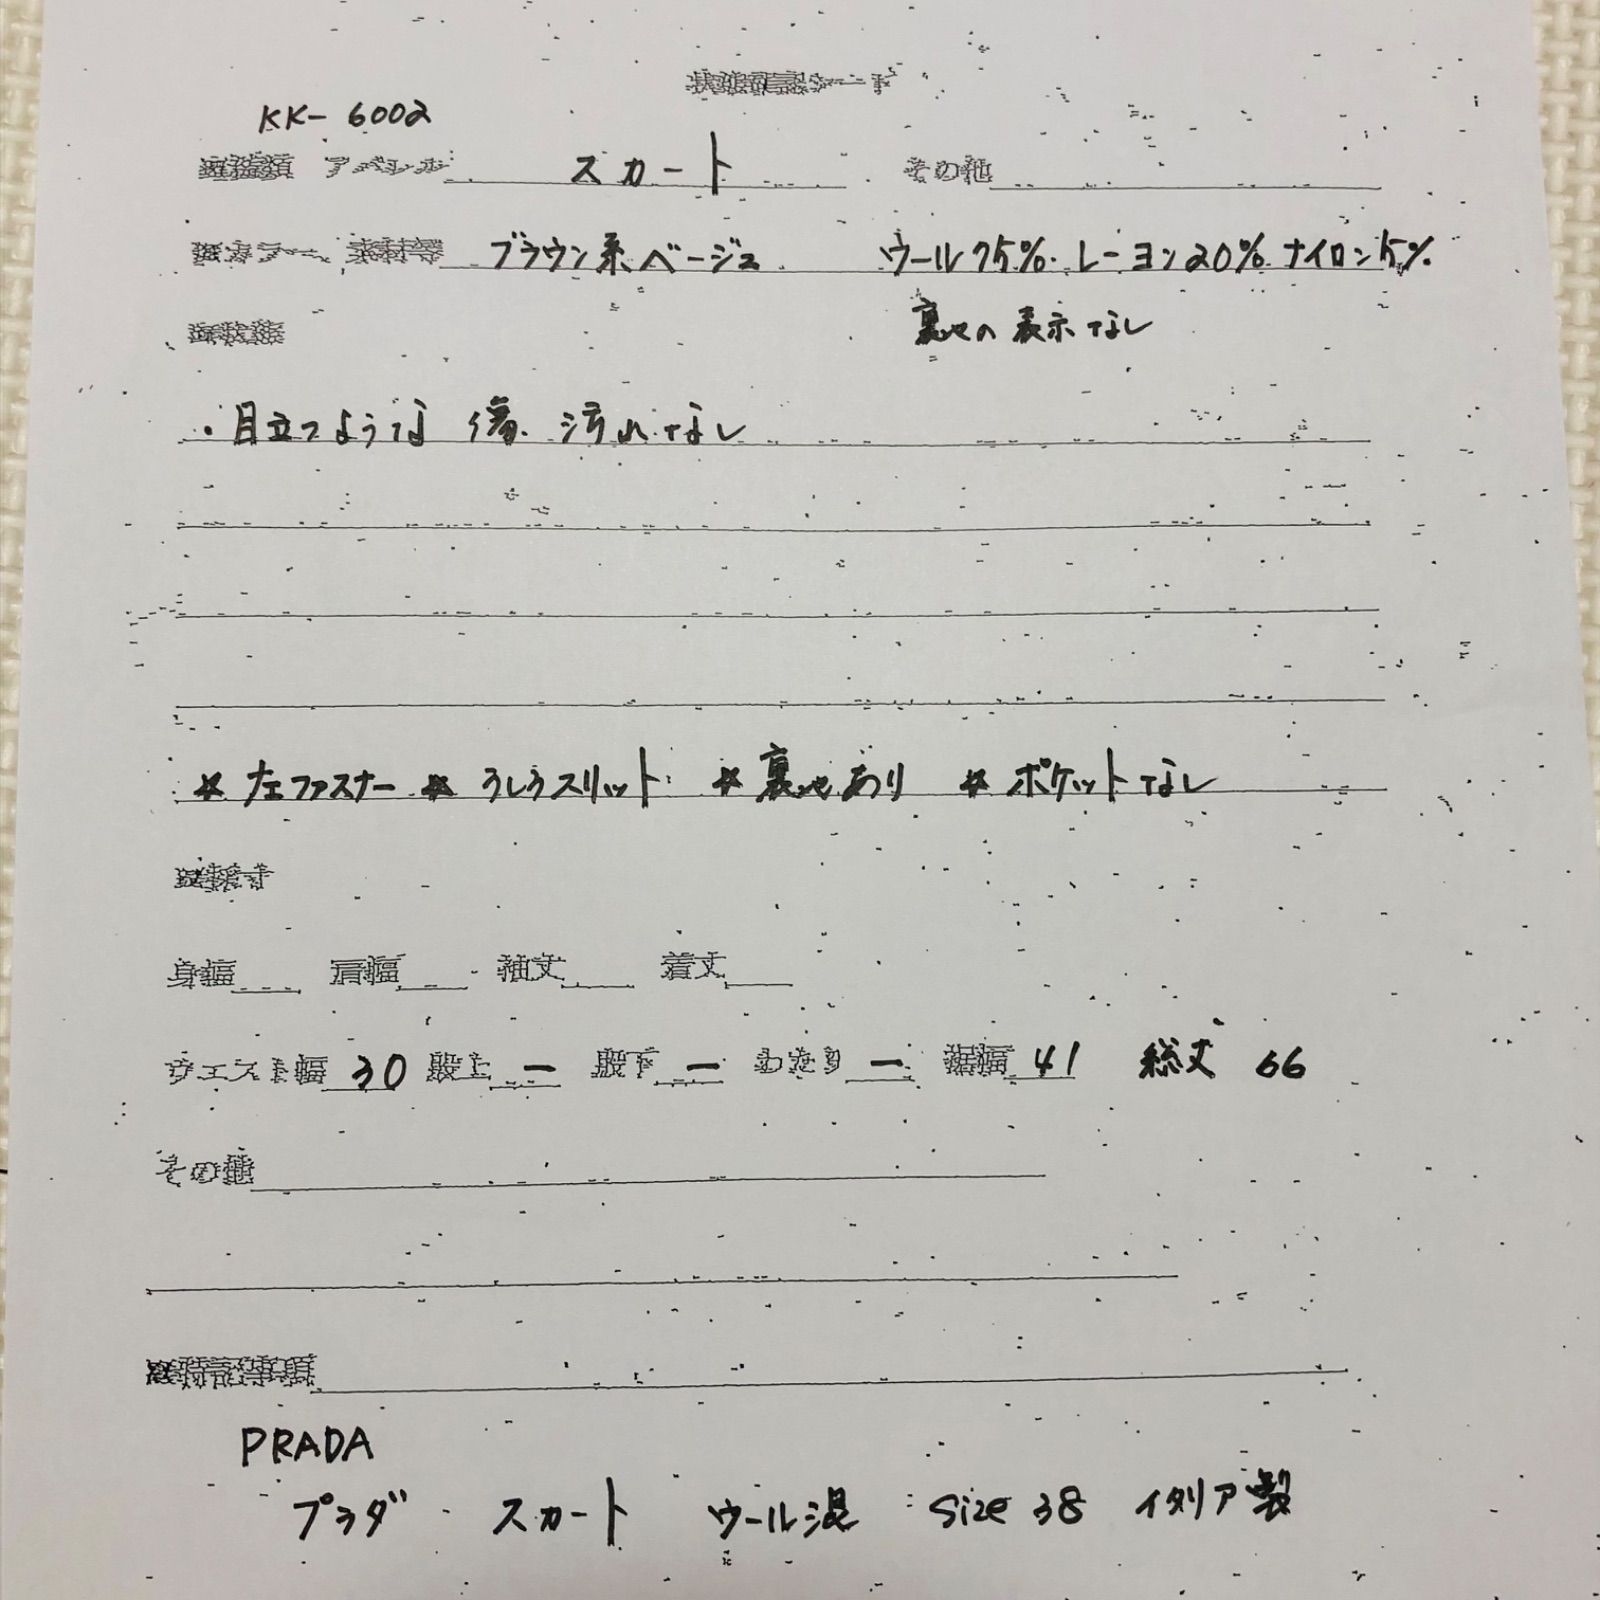 状態確認シート
KK-6002
アパレル スカート その他
カラー 素材等 ブラウン系ベージュ ウール75%. レーヨン20% ナイロン5%
裏地の表示なし
・目立つような 傷. 汚れ. なし
☆ 左ファスナー ☆ うしろスリット ☆ 裏地あり ☆ ポケットなし
採寸
身幅 肩幅 袖丈 着丈
ウエスト幅 30 股上 ー 股下 ー わたり ー 裾幅 41 総丈 66
その他
特記事項
PRADA
プラダ スカート ウール混 size 38 イタリア製